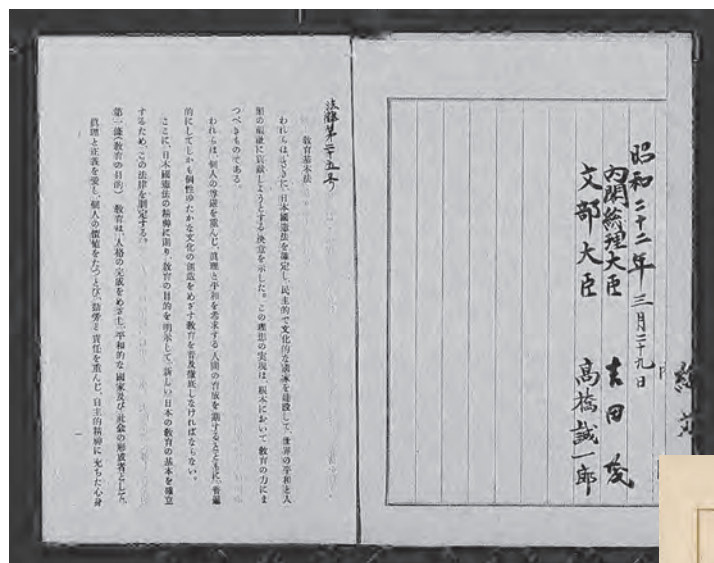 昭和二十二年三月二十九日
内閣総理大臣 吉田茂
文部大臣 高橋誠一郎
法律第二十五号
教育基本法
われらは、さきに、日本國憲法を確定し、民主的で文化的な國家を建設して、世界の平和と人
類の福祉に貢献しようとする決意を示した。この理想の実現は、根本において教育の力にま
つべきものである。
われらは、個人の尊厳を重んじ、眞理と平和を希求する人間の育成を期するとともに、普遍
的にしてしかも個性ゆたかな文化の創造をめざす教育を普及徹底しなければならない。
ここに、日本國憲法の精神に則り、教育の目的を明示して、新しい日本の教育の基本を確立
するため、この法律を制定する。
第一條(教育の目的) 教育は、人格の完成をめざし、平和的な國家及び社会の形成者として、
眞理と正義を愛し、個人の價値をたつとび、勤労と責任を重んじ、自主的精神に充ちた心身
一